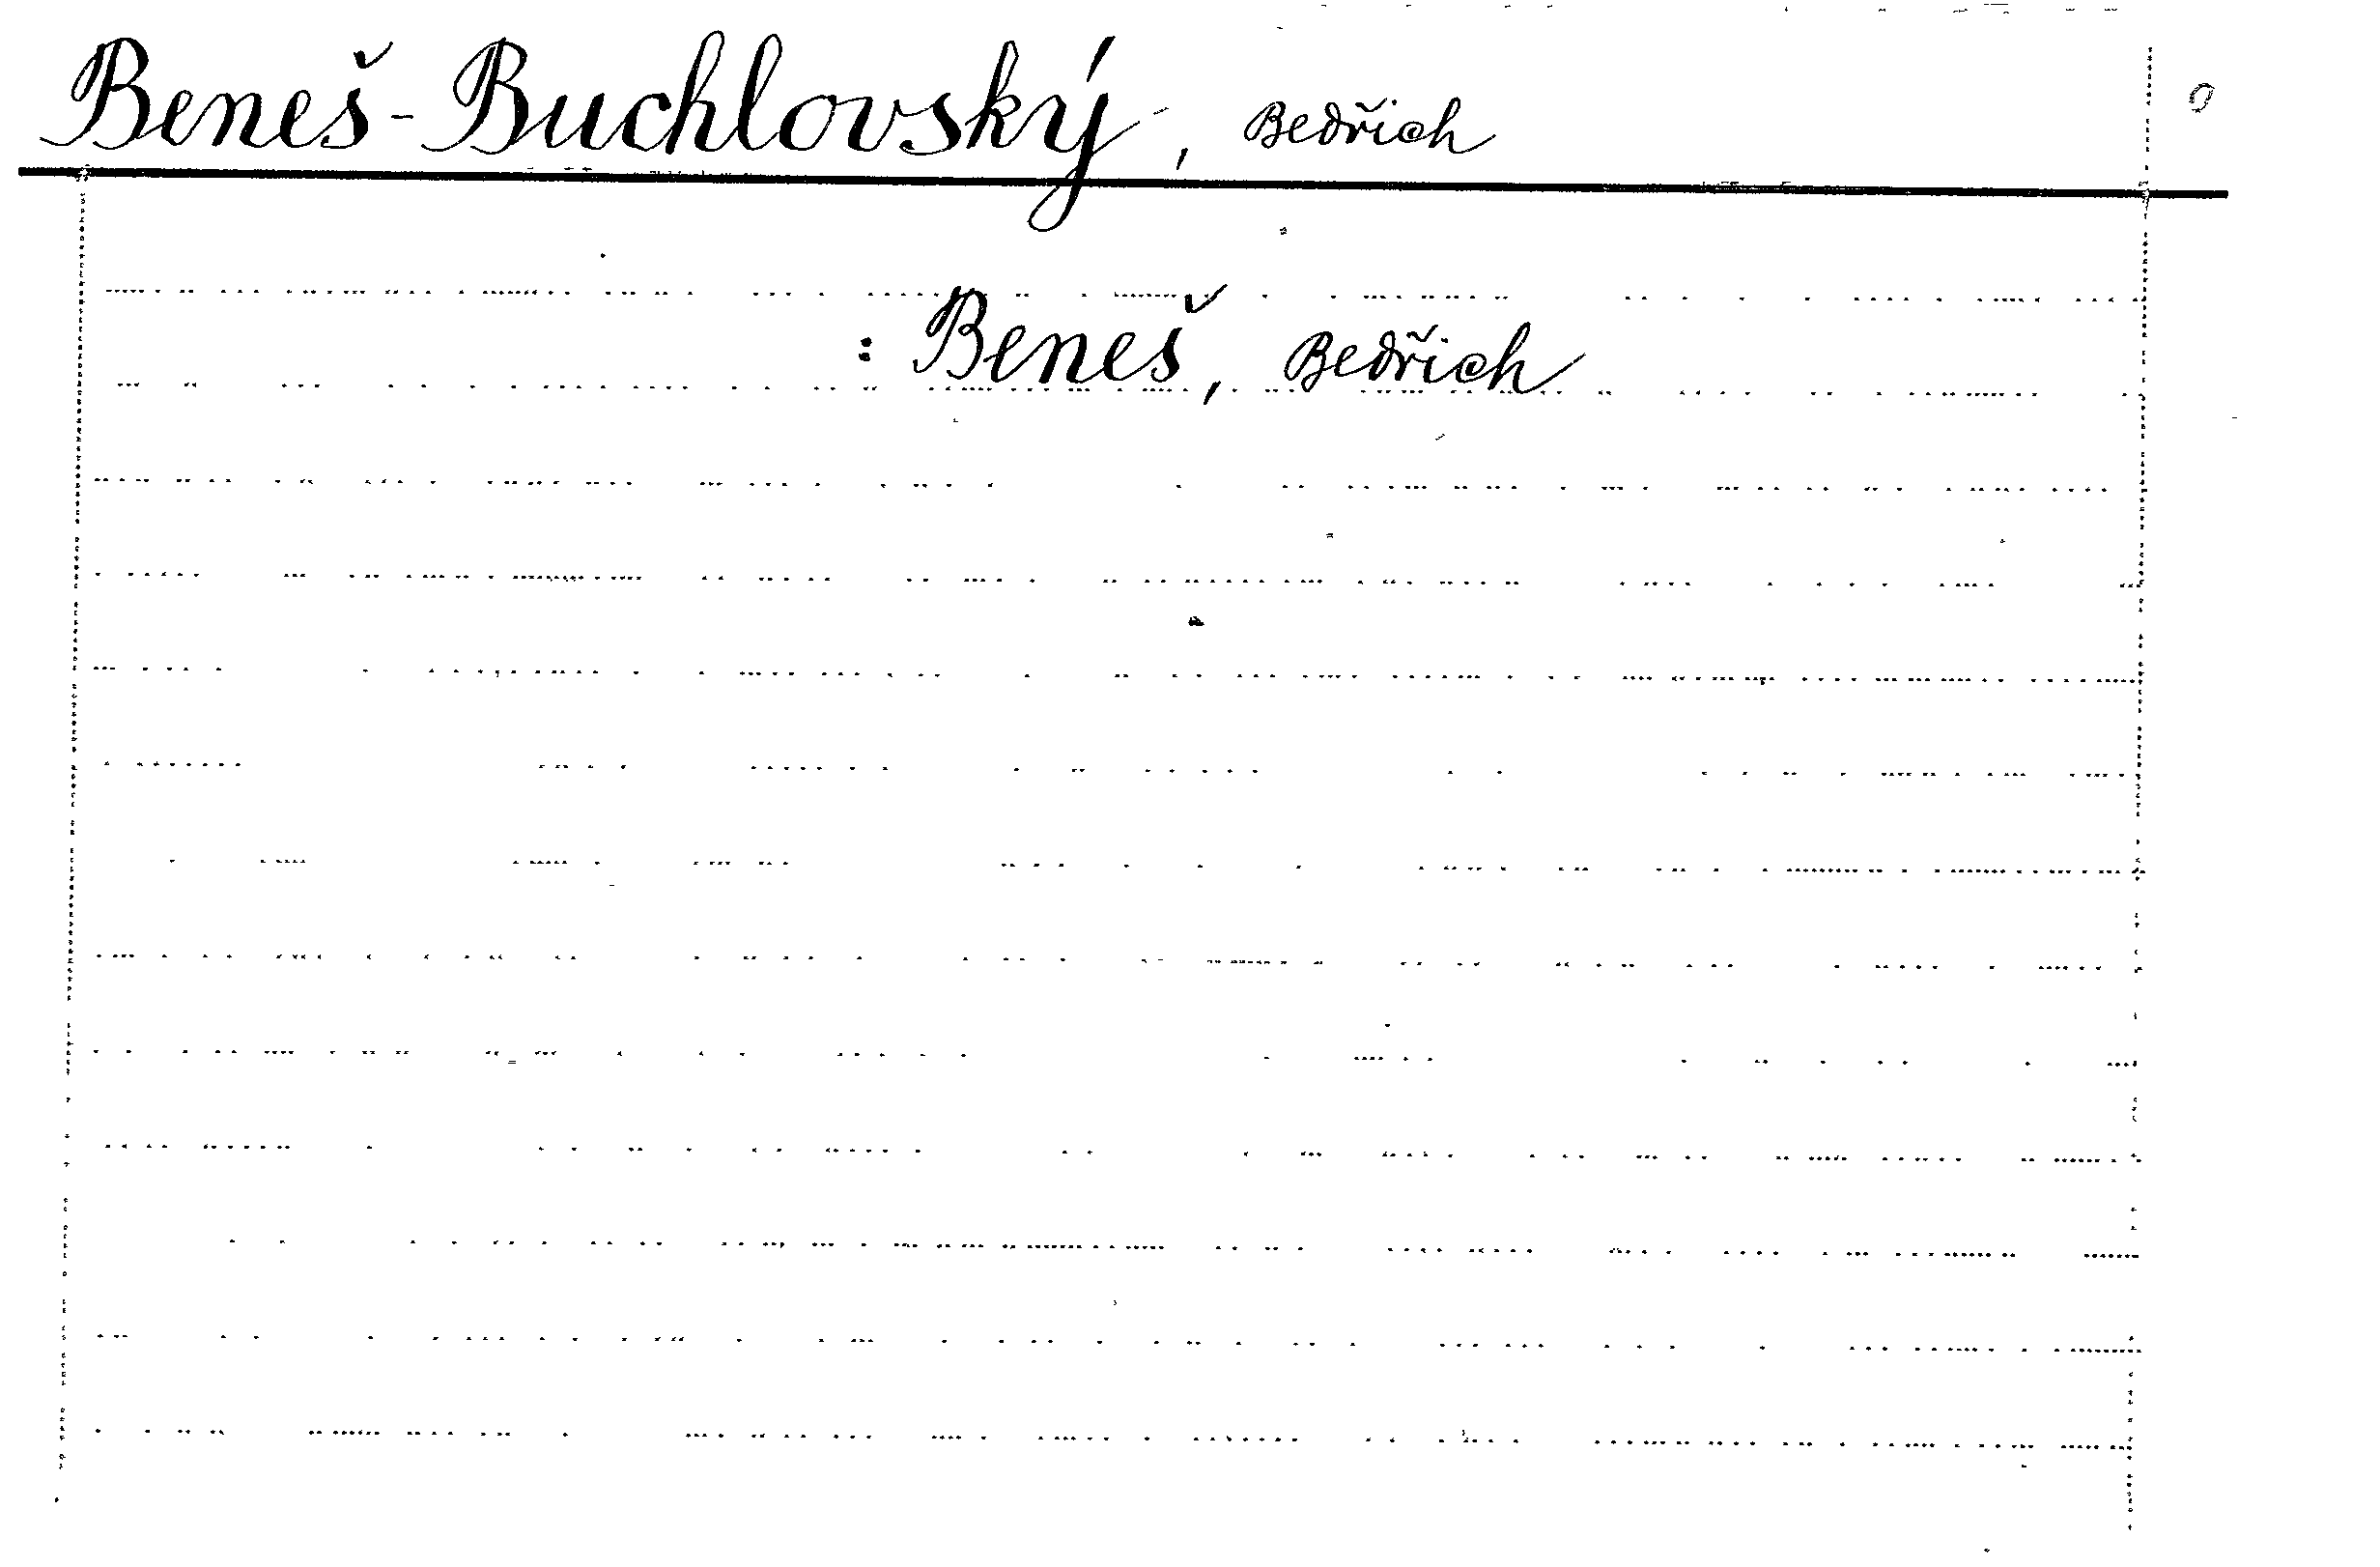 Beneš-Buchlovský, Bedřich
: Beneš, Bedřich